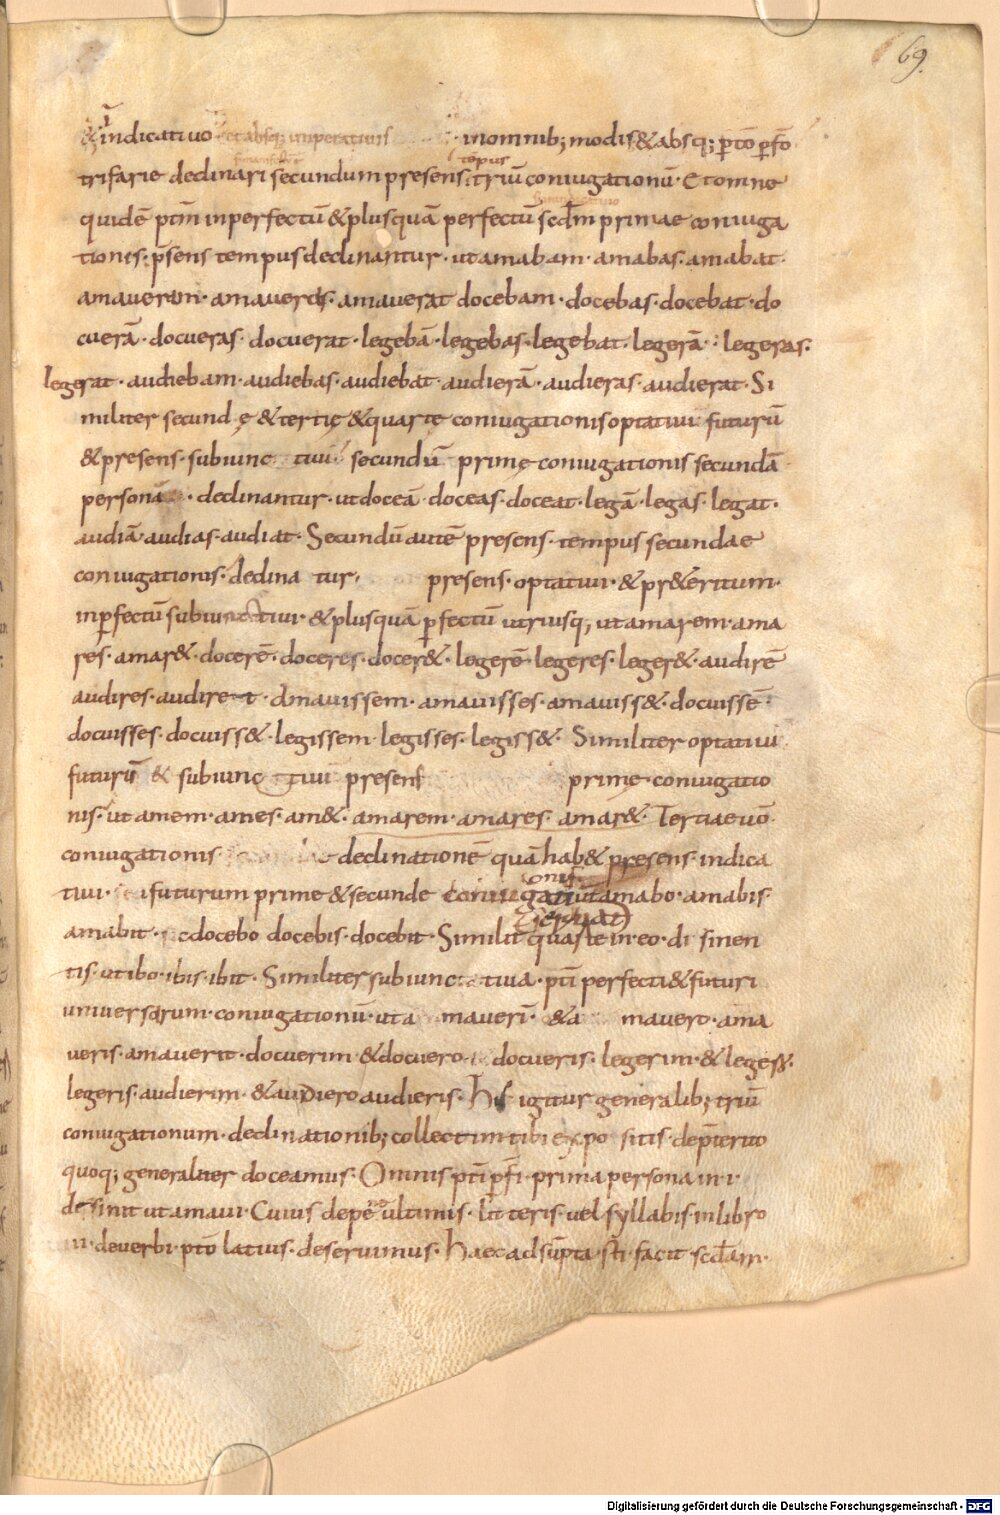 69.
& indicativo et absq; imperativis · in omnib; modis & absq; p̄tō p̄fcō
trifarie declinari secundum presens tēpus triū coniugationū · Et omne
quidē ptm̄ inperfectū & plusquā perfectū scdm̄ primae coniuga
tionis · p̄sens tempus declinantur · ut amabam · amabas · amabat ·
amaveram · amaveras · amaverat docebam · docebas · docebat · do
cuerā · docueras · docuerat · legebā · legebas · legebat · legerā · legeras ·
legerat · audiebam · audiebas · audiebat · audierā · audieras · audierat · Si
militer secundę & tertię & quarte coniugationis optativi futurū
& presens · subiunc tivi secundū primę coniugationis secundā
personā · declinantur · ut doceā doceas · doceat · legā · legas · legat ·
audiā · audias · audiat · Secundū autē presens · tempus secundae
coniugationis · declina tur · presens · optativi · & pr&eritum ·
inp̄fectū subiunctivi · & plusquā p̄fectū utriusq; ut amarem · ama
res · amar& · docerē · doceres · docer& · legerē · legeres · leger& · audirē
audires · audiret · Amavissem · amavisses · amaviss& · docuissē ·
docuisses · docuiss& · legissem · legisses · legiss& · Similiter optativi
futurū & subiunc tivi presens primę coniugatio
nis · ut amem · ames · am& · amarem · amares · amar& · Tertiae vō
coniugationis declinationē quā hab& presens · indica
tivi · futurum prime & secunde coniugationis ut amabo · amabis ·
amabit · docebo docebis · docebit · Similit̄ quarte in · eo · di sinen
tis · ut ibo · ibis · ibit · Similiter subiunc tiva · pt̄i perfecti & futuri
universarum · coniugationū · ut a maverī · & a mavero · ama
veris · amaverit · docuerim & docuero docueris · legerim · & legero ·
legeris · audierim · & audiero audieris · His igitur generalib; triū
coniugationum · declinationib; collectim tibi expo sitis · de p̄terito
quoq; generaliter doceamus · Omnis pt̄i p̄fc̄i · prima persona in · i ·
desinit ut amavi · Cuius de penultimis · litteris · vel syllabis in libro
· de verbi · pt̄o latius · deseruimus · Haec adsūpta · sti · facit scdam ·
Digitalisierung gefördert durch die Deutsche Forschungsgemeinschaft · DFG